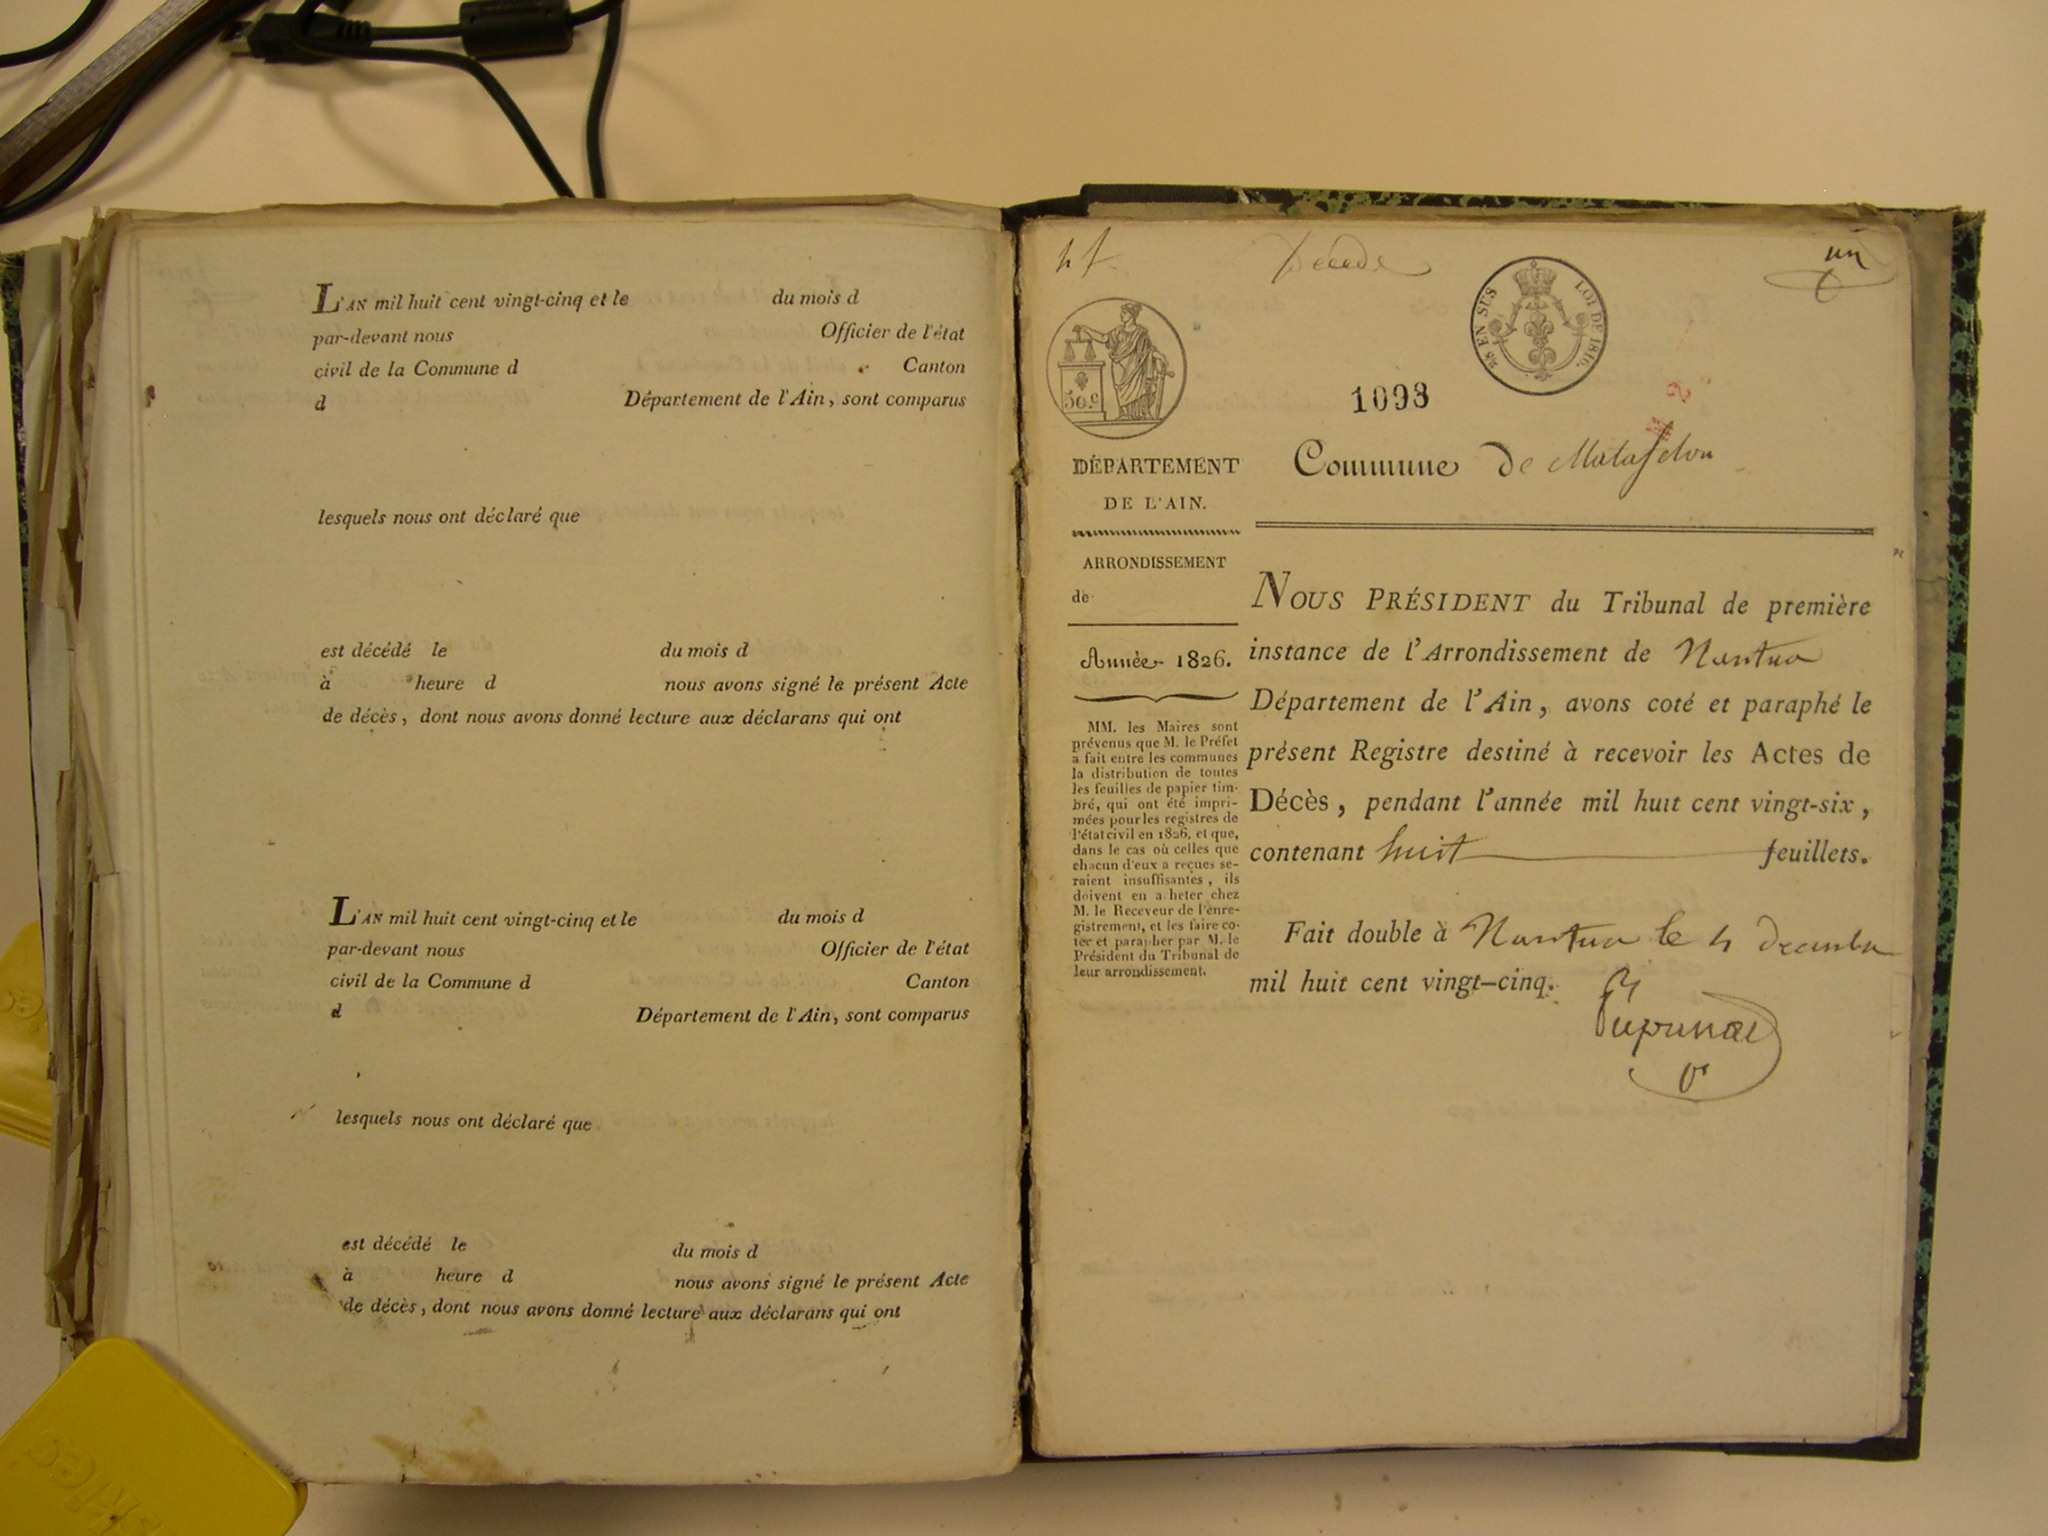 L'AN mil huit cent vingt-cinq et le du mois d
par-devant nous Officier de l'état
civil de la Commune d Canton
d Département de l'Ain, sont comparus
lesquels nous ont déclaré que
est décédé le du mois d
à heure d nous avons signé le présent Acte
de décès, dont nous avons donné lecture aux déclarans qui ont
L'AN mil huit cent vingt-cinq et le du mois d
par-devant nous Officier de l'état
civil de la Commune d Canton
d Département de l'Ain, sont comparus
lesquels nous ont déclaré que
est décédé le du mois d
à heure d nous avons signé le présent Acte
de décès, dont nous avons donné lecture aux déclarans qui ont
un
EN SUS LOI DE 1816.
50 c
1093
DÉPARTEMENT
DE L'AIN.
ARRONDISSEMENT
de
Année 1826.
MM. les Maires sont
prévenus que M. le Préfet
a fait entre les communes
la distribution de toutes
les feuilles de papier tim-
bré, qui ont été impri-
mées pour les registres de
l'état civil en 1826, et que,
dans le cas où celles que
chacun d'eux a reçues se-
raient insuffisantes, ils
doivent en a heter chez
M. le Receveur de l'enre-
gistrement, et les faire co-
ter et parapher par M. le
Président du Tribunal de
leur arrondissement.
Commune de Matafelon
NOUS PRÉSIDENT du Tribunal de première
instance de l'Arrondissement de Nantua
Département de l'Ain, avons coté et paraphé le
présent Registre destiné à recevoir les Actes de
Décès, pendant l'année mil huit cent vingt-six,
contenant huit feuillets.
Fait double à Nantua le 4 decembre
mil huit cent vingt-cinq.